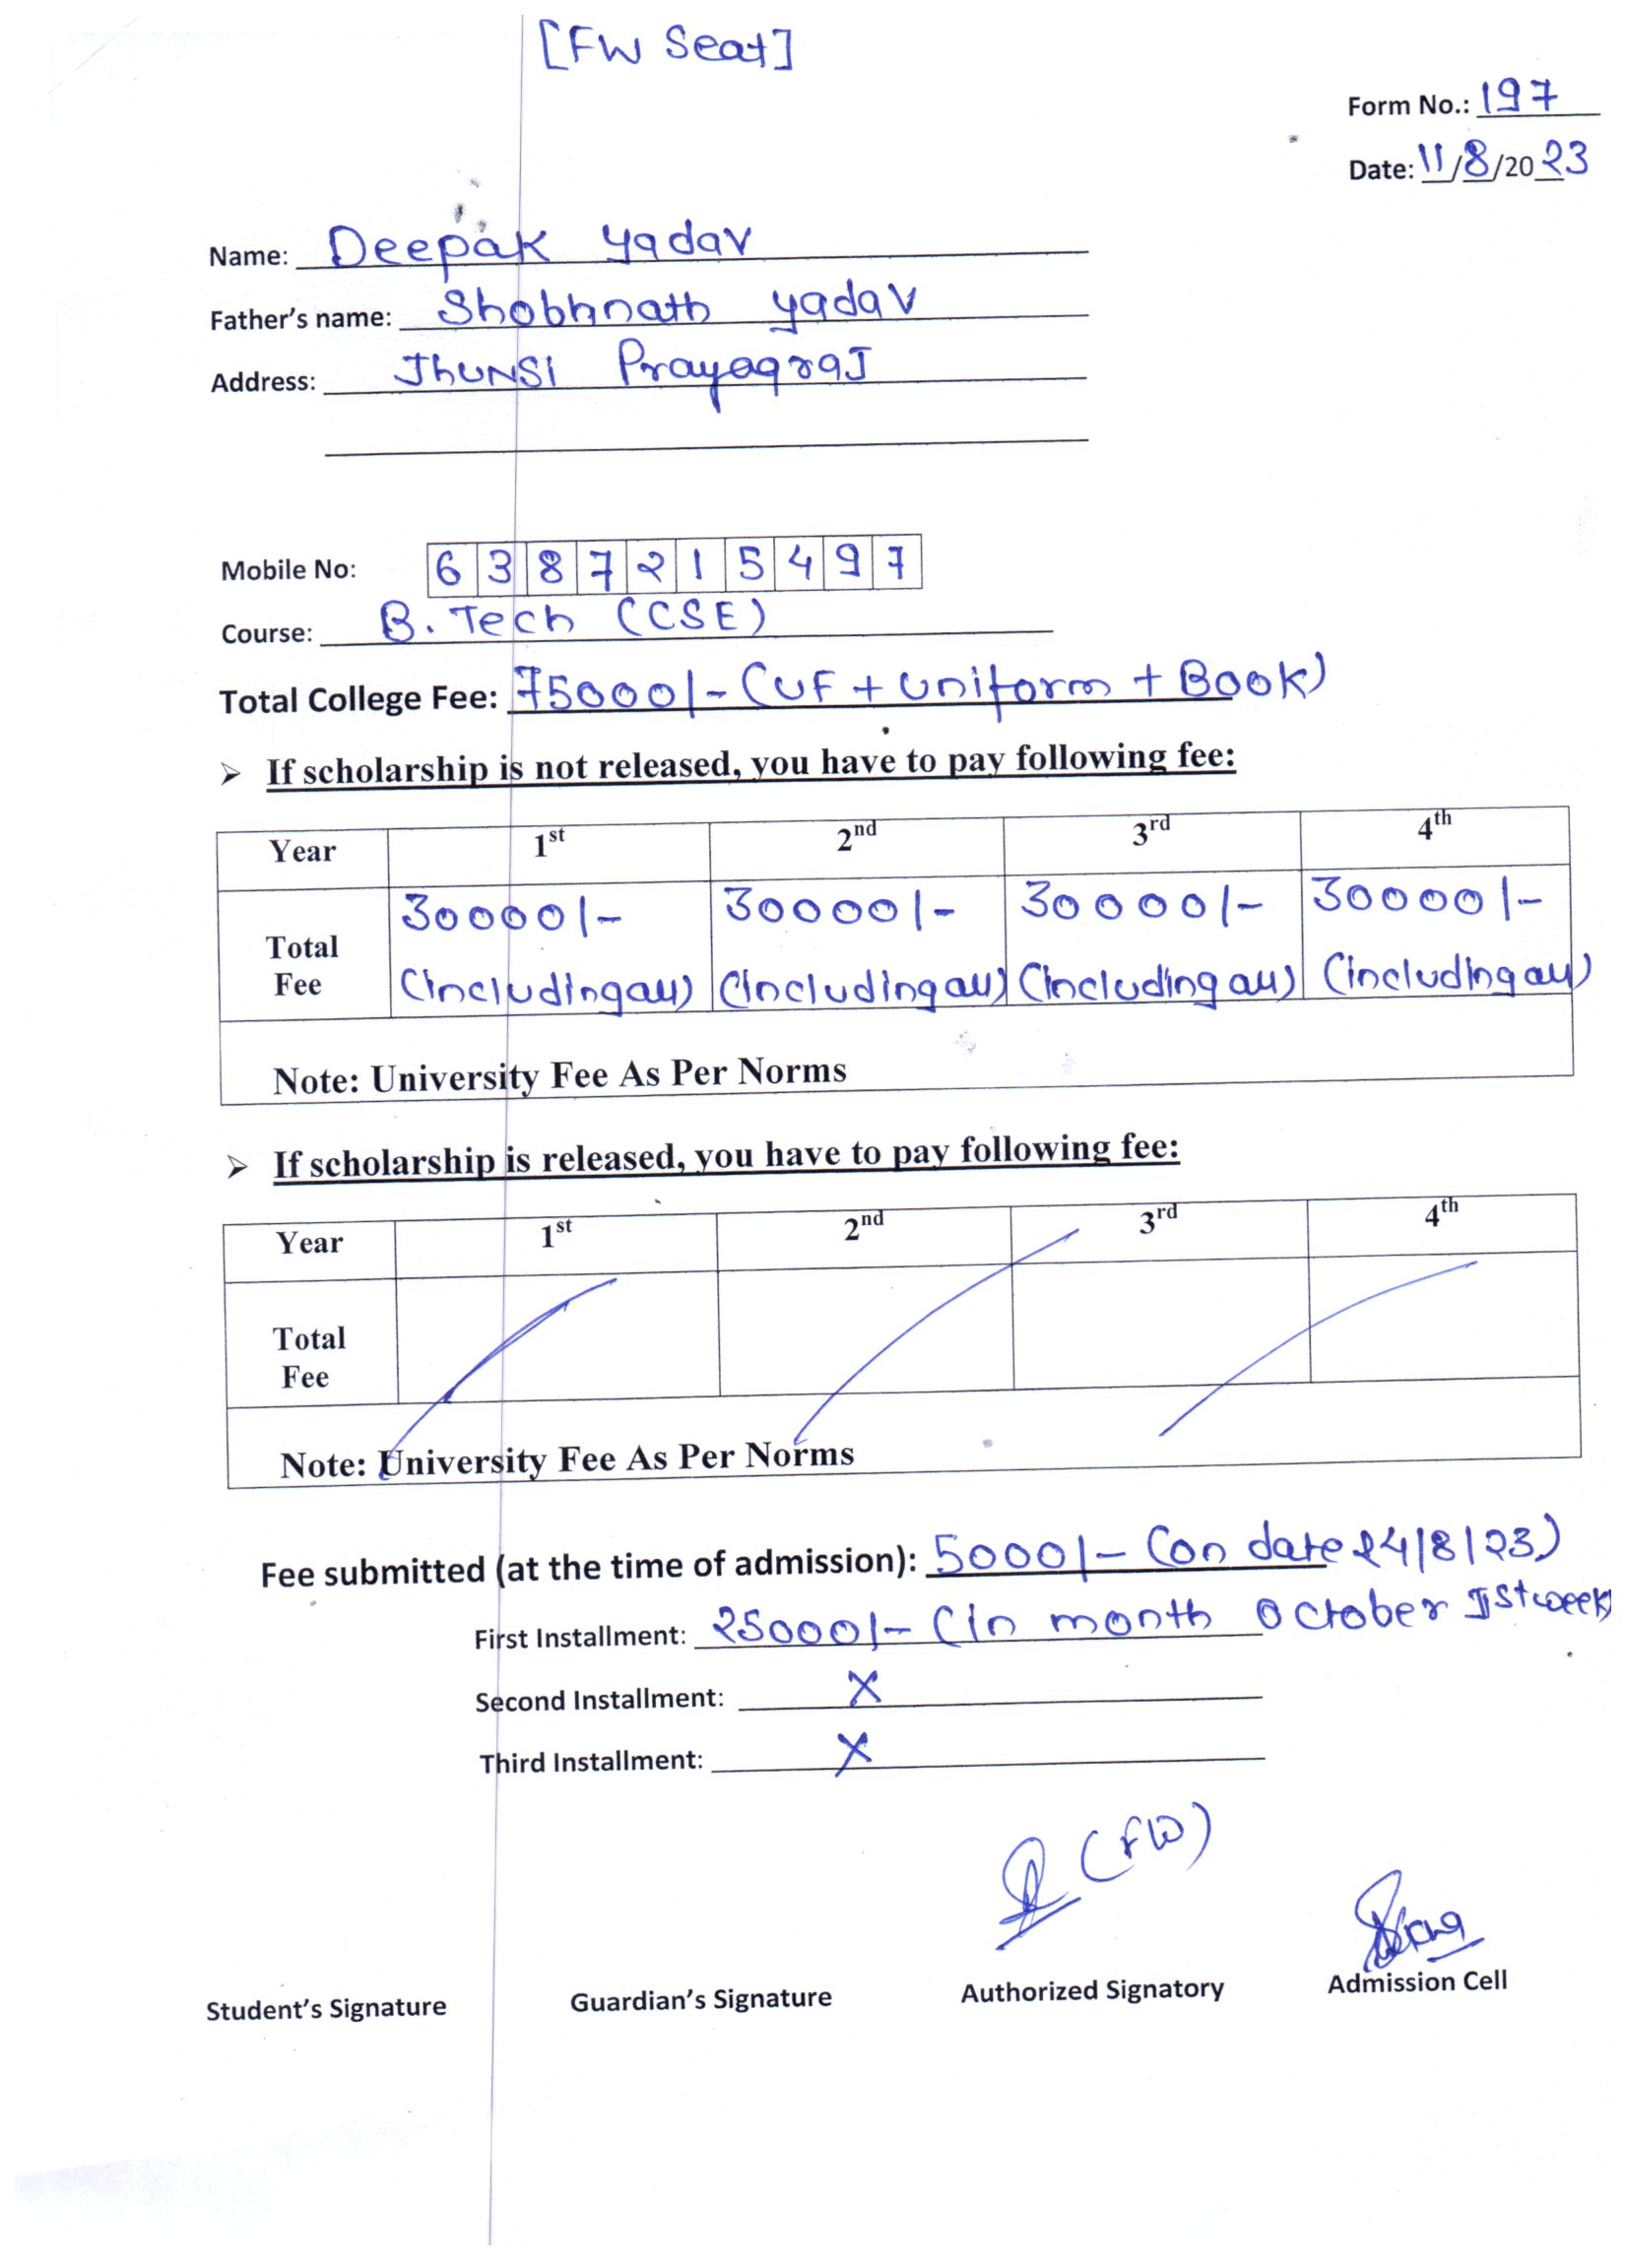 [FW Seat]
Form No.: 197
Date: 11/8/2023
Name: Deepak Yadav
Father's name: Shobhnath Yadav
Address: Jhunsi Prayagraj
Mobile No: 6387215497
Course: B.Tech (CSE)
Total College Fee: 75000/- (UF + Uniform + Book)
➢ If scholarship is not released, you have to pay following fee:
Year 1st 2nd 3rd 4th
Total Fee 30000/- (including all) 30000/- (including all) 30000/- (including all) 30000/- (including all)
Note: University Fee As Per Norms
➢ If scholarship is released, you have to pay following fee:
Year 1st 2nd 3rd 4th
Total Fee
Note: University Fee As Per Norms
Fee submitted (at the time of admission): 5000/- (on date 24/8/23)
First Installment: 25000/- (In month October Ist week
Second Installment: X
Third Installment: X
(FW)
Student's Signature Guardian's Signature Authorized Signatory Admission Cell